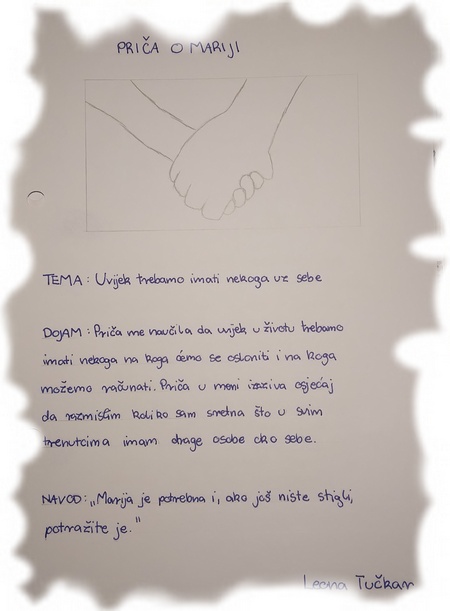 PRIČA O MARIJI
TEMA: Uvijek trebamo imati nekoga uz sebe
DOJAM: Priča me naučila da uvijek u životu trebamo
imati nekoga na koga ćemo se osloniti i na koga
možemo računati. Priča u meni izaziva osjećaj
da razmislim koliko sam sretna što u svim
trenutcima imam drage osobe oko sebe.
NAVOD: „Marija je potrebna i, ako još niste stigli,
potražite je."
Leona Tučkar